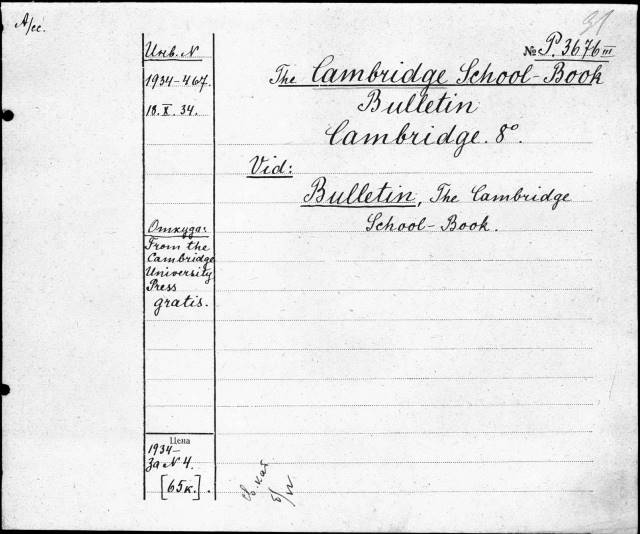 А/сс.
31
Инв. N
1934-467.
18. X. 34.
№ P. 3676 III
The Cambridge School-Book
Bulletin
Cambridge. 8°.
Vid:
Bulletin, The Cambridge
School-Book.
Откуда:
From the
Cambridge
University
Press
gratis.
Цена
1934-
За N 4.
[65к.].